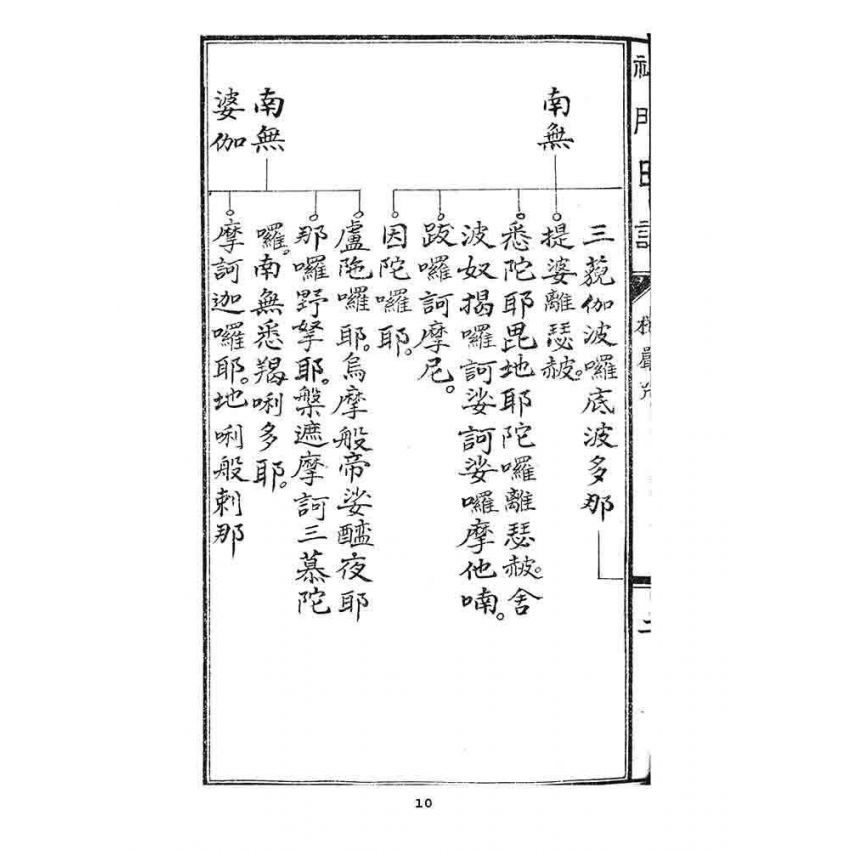 三藐伽波囉底波多那
南無
提婆離瑟赧。
悉陀耶毘地耶陀囉離瑟赧。舍
波奴揭囉訶娑訶娑囉摩他喃。
跋囉訶摩尼。
因陀囉耶。
南無
婆伽
盧陁囉耶。烏摩般帝娑醯夜耶
那囉野拏耶。槃遮摩訶三慕陀
囉。南無悉羯唎多耶。
摩訶迦囉耶。地唎般剌那
10